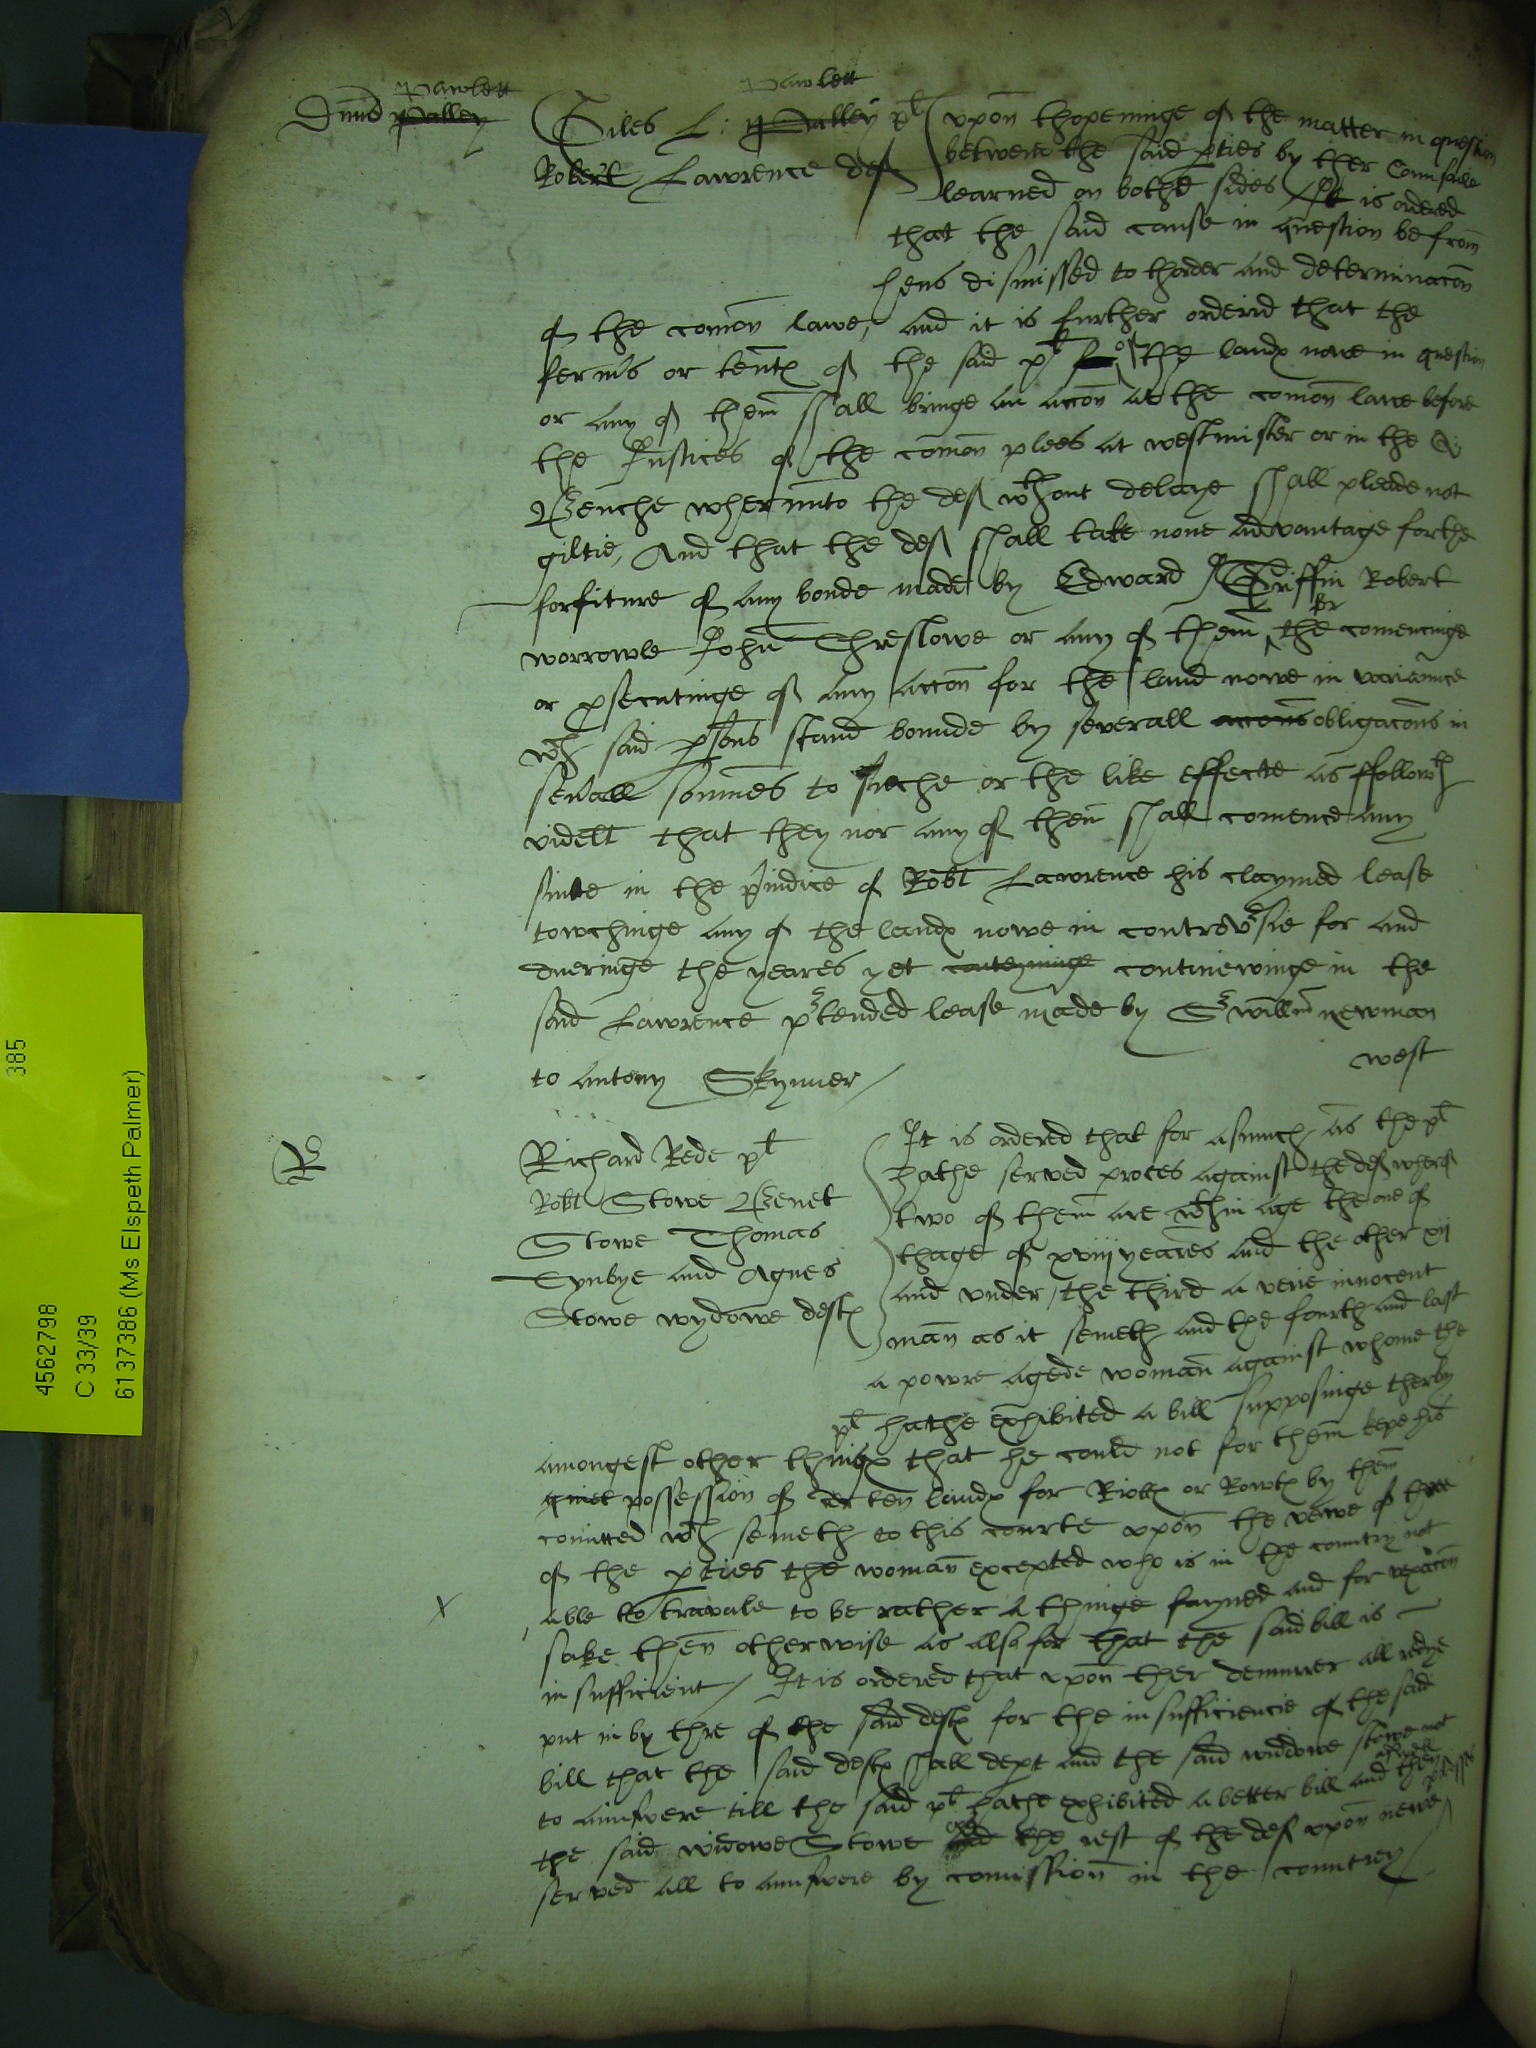 Pawlett Pawlett
Dimid Palley Giles L: Palley pl upon thopeninge of the matter in question
Robert Lawrence def betwene the said pties by ther Counsaile
learned on bothe sides It is ordered
that the said cause in question be from
hens dismissed to thorder and determinacon
of the comon lawe, and it is further orderid that the
fermrs or tents of the said pl of the lands nowe in question
or any of them shall bringe an accon at the comon lawe before
the Justices of the comon plees at westmister or in the Q
Benche wherunto the def wthout delaye shall pleade not
giltie, And that the def shall take none advantage for the
forfiture of any bonde made by Edward Griffin Robert
for
worrowle John Threslowe or any of them the comencinge
or psecutinge of any accon for the land nowe in variaunce
wch said psons stand bounde by severall accons obligacons in
sevall sommes to suche or the like effecte as ffollowth
videlt that they nor any of them shall comence any
suite in the piudice of Robt Lawrence his claymed lease
towchinge any of the lands nowe in controvsie for and
dueringe the yeares yet conteyninge continewinge in the
said Lawrence ptended lease made by Sr willm newman
to antony Skynner /
west
R
Richard Rede pl It is ordered that for asmuch as the pl
Robt Stowe Benet hathe served proces against the def wherof
Stowe Thomas two of them are wthin age the one of
Synbye and Agnes thage of xviij yeares and the other xij
Stowe wydowe defts and under / the third a verie innocent
man as it semeth and the fourth and last
a powre agede woman against whome the
pl hathe exhibited a bill supposinge therby
amongest other things that he could not for them kepe his
quiet possession of certen lands for Riotts or Rowts by them
comitted wch semeth to this courte upon the vewe of thre
of the pties the woman excepted who is in the countrey not
x
able to travale to be rather a thinge fayned and for vexacon
sake then otherwise as also for that the said bill is
insufficient / It is ordered that upon ther demurrer all redye
put in by thre of the said defts for the insufficiencie of the said
bill that the said defts shall dept and the said widowe Stowe not
to aunswere till the said pl hathe exhibited a better bill and then
aswell
the said widowe Stowe as the rest of the def upon newe
processe
served all to aunswere by comission in the countrey /
385
4562798
C 33/39
6137386 (Ms Elspeth Palmer)